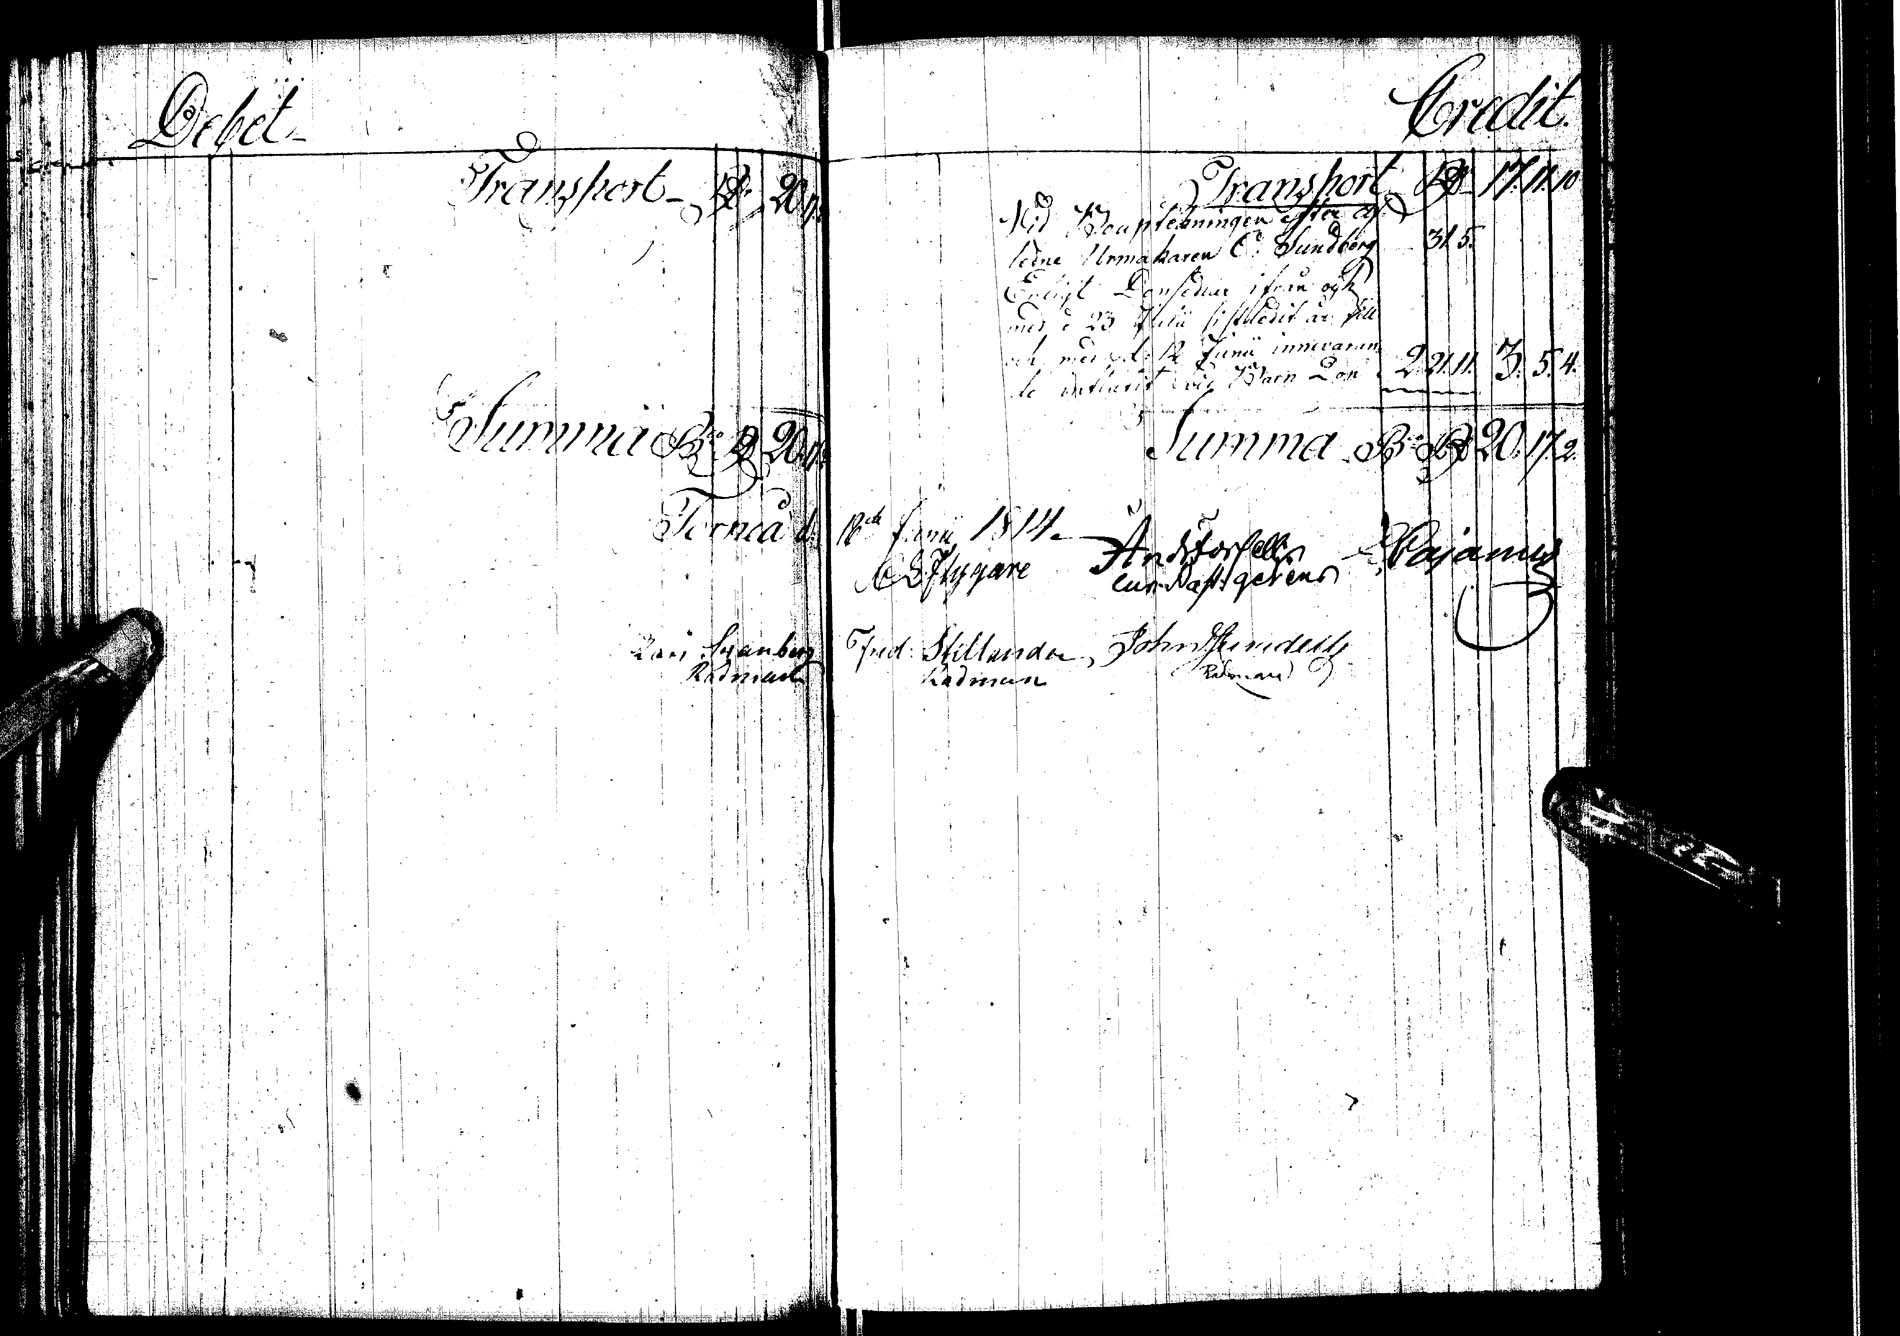 Debet
Transport Rd 20. 17.
Summa Bco Rd 20. 17.
Credit.
Transport Rd 17. 11. 10
Vid Bouptekningen efter af-
ledne Urmakaren C. Sundberg 31. 5.
Enligt ifrån och
med d 23 Julii sistledit år till
och med d. 12 Junii innevaran-
de influtit vid Barn Dop 2. 21. 11. 3. 5. 4.
Summa Bco Rd 20. 17. 2.
Torneå d. 18de Junii 1814.
Flygare And Forsell Cajanus
Svanberg Fred: Stillander John
Rådman Rådman Rådman